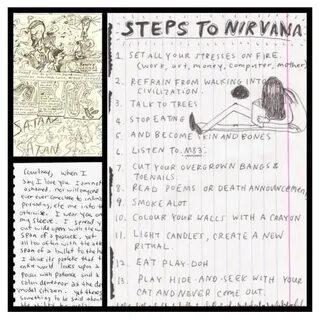 SATAN
SATAN
Courtney, when I
say I love you I am not
ashamed, nor will anyone
ever ever come close to intimi
persuading, etc me into th
otherwise. I wear you on
my sleeve. I spread y
out wide open with the w
span of a peacock, yet
all too often with the att
span of a bullet to the h
I think its pathetic that th
entire world looks upon a
Person with patience and a
calm demeanor as the de
model citizen. yet there
something to be said abou
the ability to
STEPS TO NIRVANA
1. SET ALL YOUR STRESSES ON FIRE.
(work, art, money, computer, mother
2. REFRAIN FROM WALKING INTO
CIVILIZATION.
3. TALK TO TREES
4. STOP EATING
5. AND BECOME SKIN AND BONES
6. LISTEN TO M83.
7. CUT YOUR OVERGROWN BANGS &
TOENAILS.
8. READ POEMS OR DEATH ANNOUNCEMEN
9. SMOKE ALOT
10. COLOUR YOUR WALLS WITH A CRAYON
11. LIGHT CANDLES, CREATE A NEW
RITUAL.
12. EAT PLAY-DOH
13. PLAY HIDE-AND-SEEK WITH YOUR
CAT AND NEVER COME OUT.